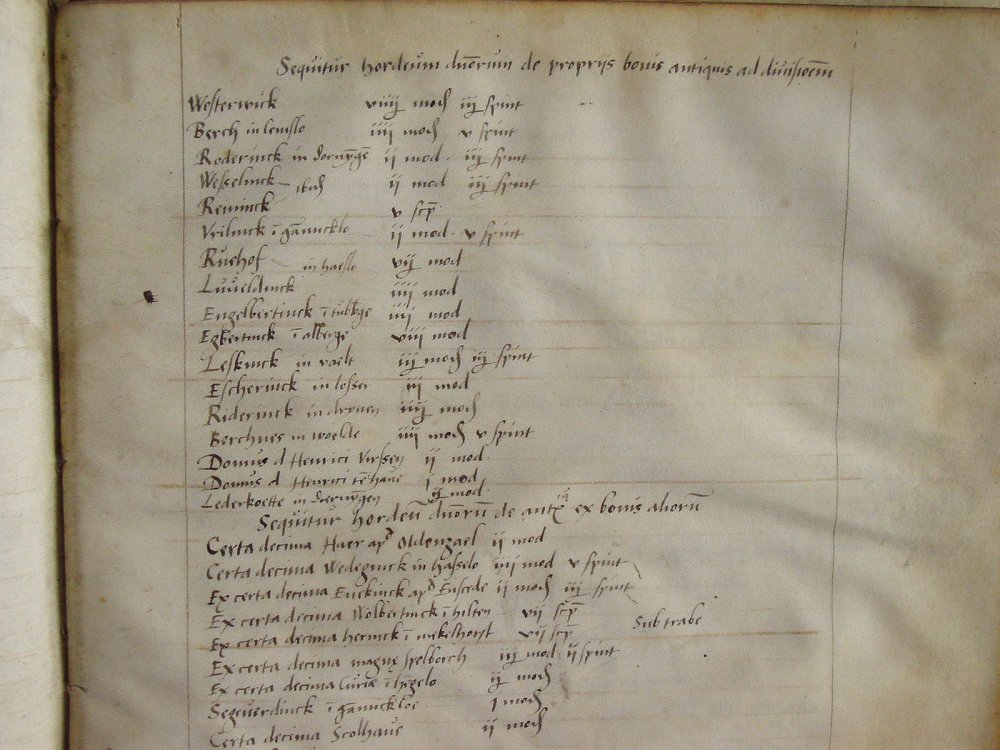 Sequitur hordeum duōrum de proprijs bonis antiquis ad diuisioēm
Westerwick viiij mod iij spint
Berch in lemslo iiij mod v spint
Roderinck in ij mod iij spint
Wesselinck ij mod iij spint
Reminck v scp̄
Vrilinck ī gāmicklo ij mod v spint
Ruehof in haeslo vij mod
Luueldinck iiij mod
Engelbertinck ī iiij mod
Egbertinck ī alberge viij mod
Leskinck in raelt iij mod iij spint
Escherinck in losser iij mod
Riderinck in drynen iiij mod
Berchnes in woelde iiij mod v spint
Domus d Henrici Virssen ij mod
Domus d Henrici tē haue i mod
Lederkoette in ij mod
Sequitur hordeū duōrū de ex bonis aliorū
Certa decima Haer ap Oldenzael ij mod
Certa decima Wedeginck in hasselo iiij mod v spint
Ex certa decima Euekinck ap Enscede ij mod iij spint
Ex certa decima Wolbertinck ī hilten vij scp̄
Ex certa decima herinck ī mekelhorst vij scp̄ Sub trabe
Ex certa decima magne spelberch iij mod ij spint
Ex certa decima Curie ī hēgelo ij mod
Segeuerdinck ī gāmickloe i mod
Certa decima Scolhaue ij mod